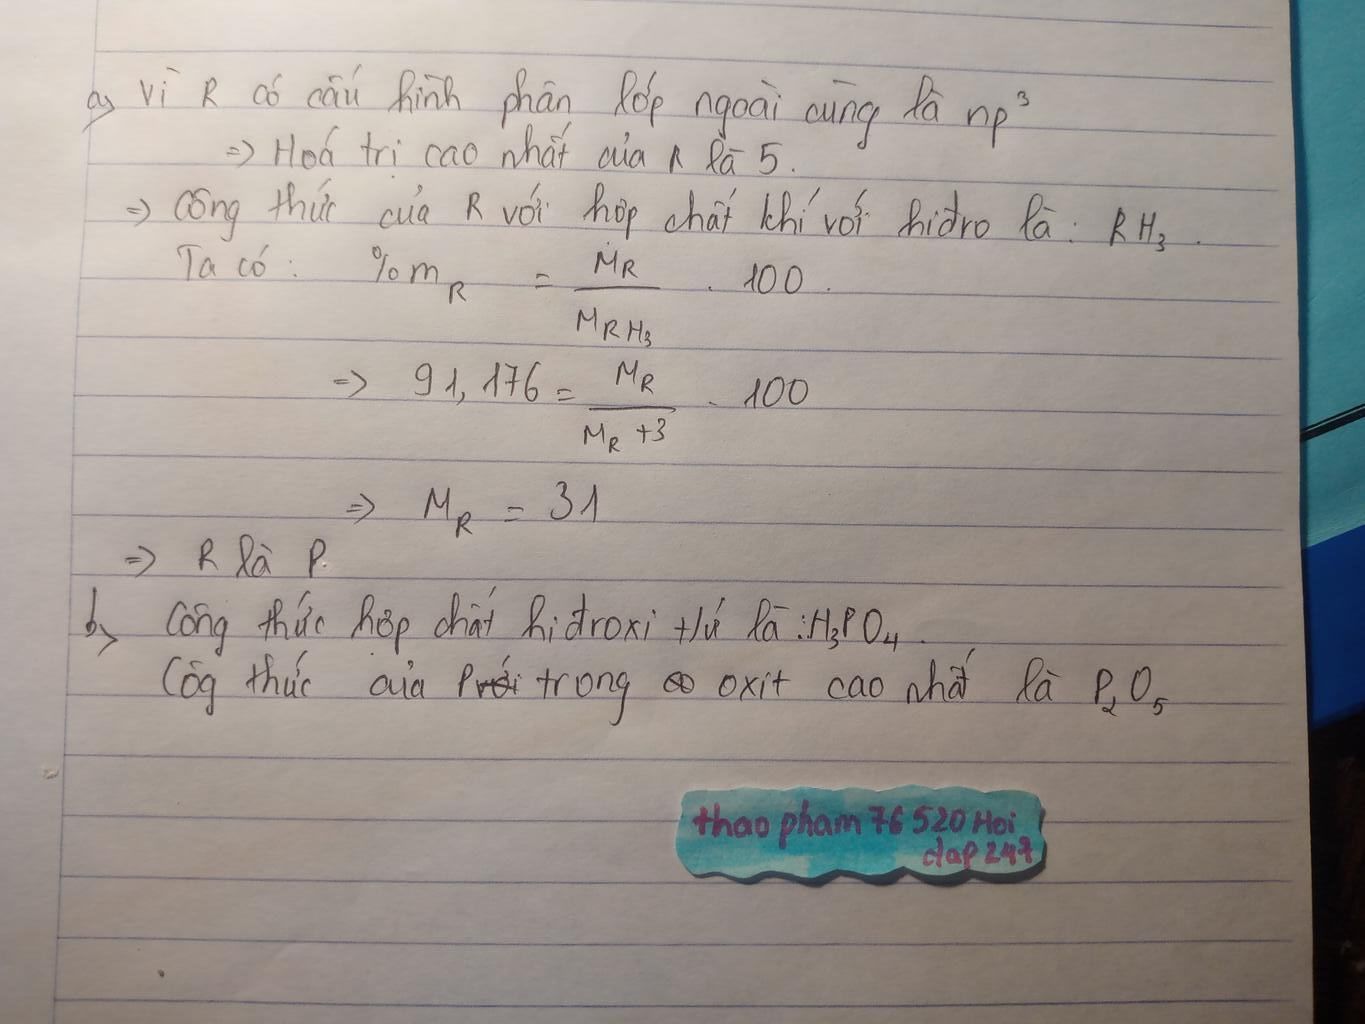 a, Vì R có cấu hình phân lớp ngoài cùng là np³
=> Hoá trị cao nhất của R là 5.
=> Công thức của R với hợp chất khí với hiđro là: RH₃.
Ta có: %m_R = M_R / M_RH₃ . 100.
=> 91,176 = M_R / M_R +3 . 100
=> M_R = 31
=> R là P.
b, Công thức hợp chất hiđroxi t/ứ là: H₃PO₄.
Côg thức của P trong oxit cao nhất là P₂O₅
thao pham 76520 Hoi
dap 247